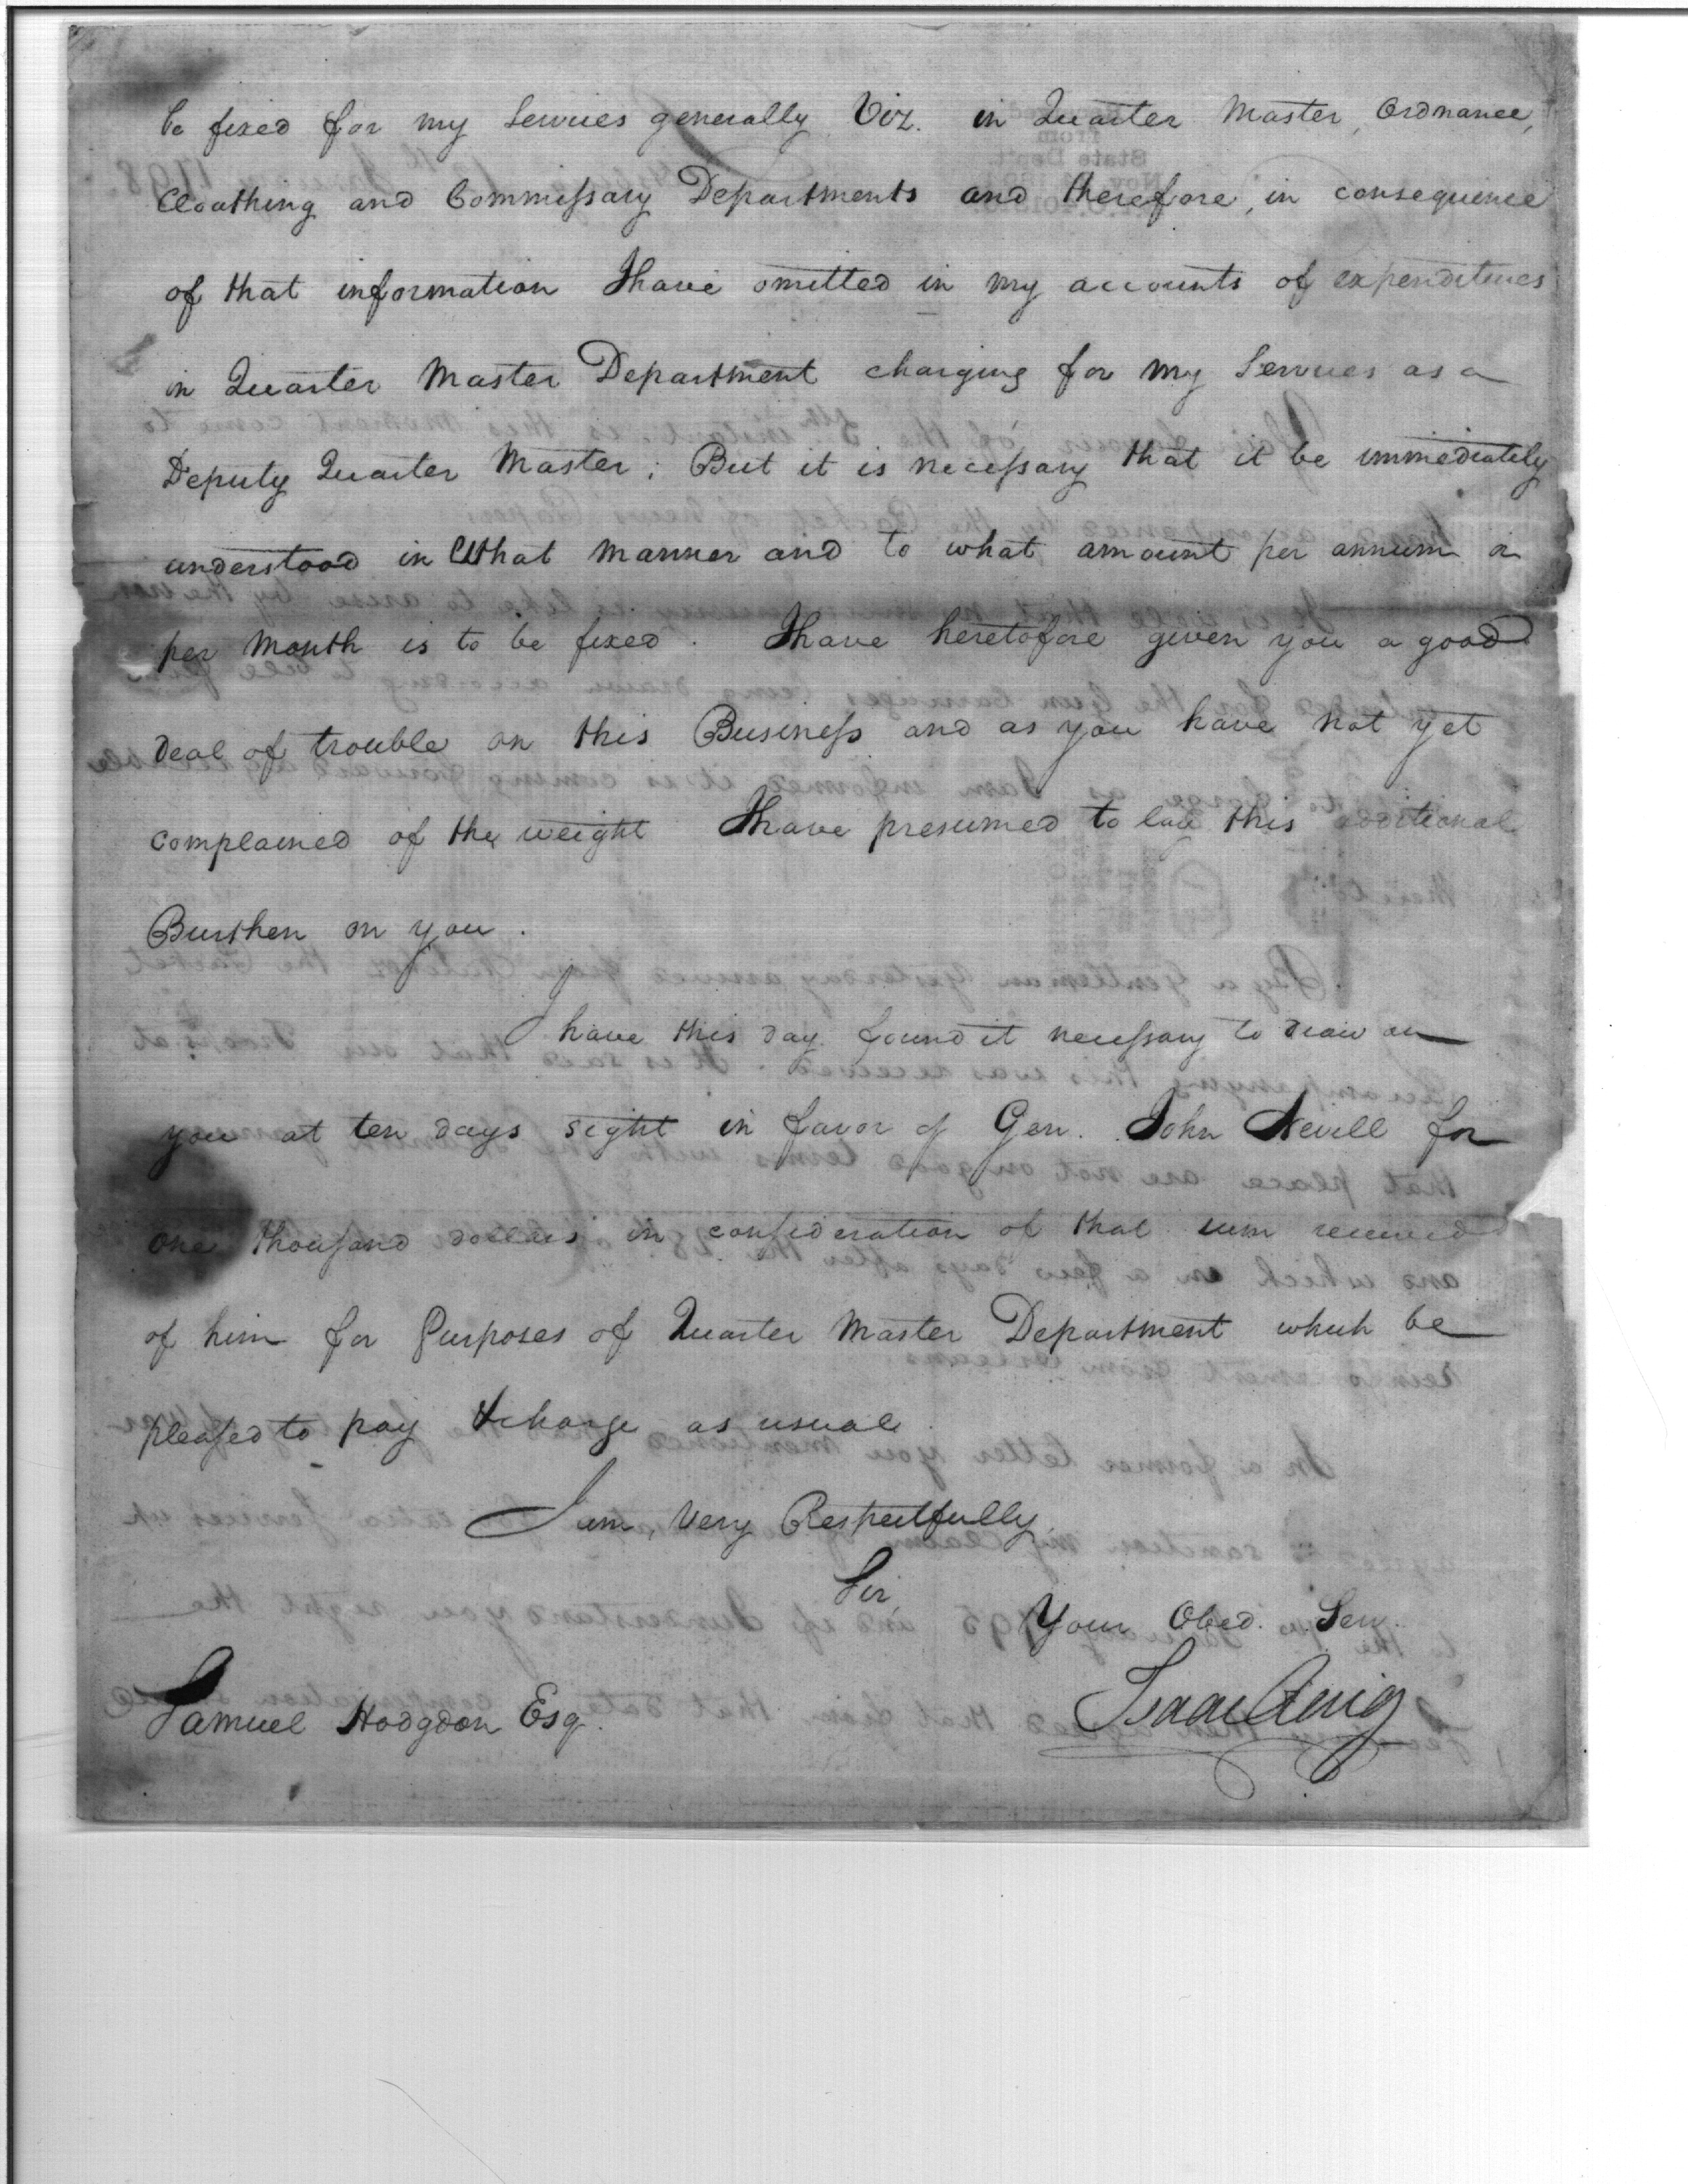 be fixed for my Services generally Viz. in Quarter Master, Ordnance,
Cloathing and Commissary Departments and therefore, in consequence
of that information I have omitted in my accounts of expenditures
in Quarter Master Department charging for my Services as a
Deputy Quarter Master; But it is necessary that it be immediately
understood in What manner and to what amount per annum or
per Month is to be fixed. I have heretofore given you a good
deal of trouble on this Business and as you have not yet
complained of the weight I have presumed to lay this additional
Burthen on you.
I have this day found it necessary to draw on
you at ten days sight in favor of Gen. John Nevill for
one thousand dollars in consideration of that sum received
of him for Purposes of Quarter Master Department which be
pleased to pay & charge as usual.
I am, Very Respectfully,
Sir,
Your Obed. Serv.
Samuel Hodgdon Esq.
Isaac Craig